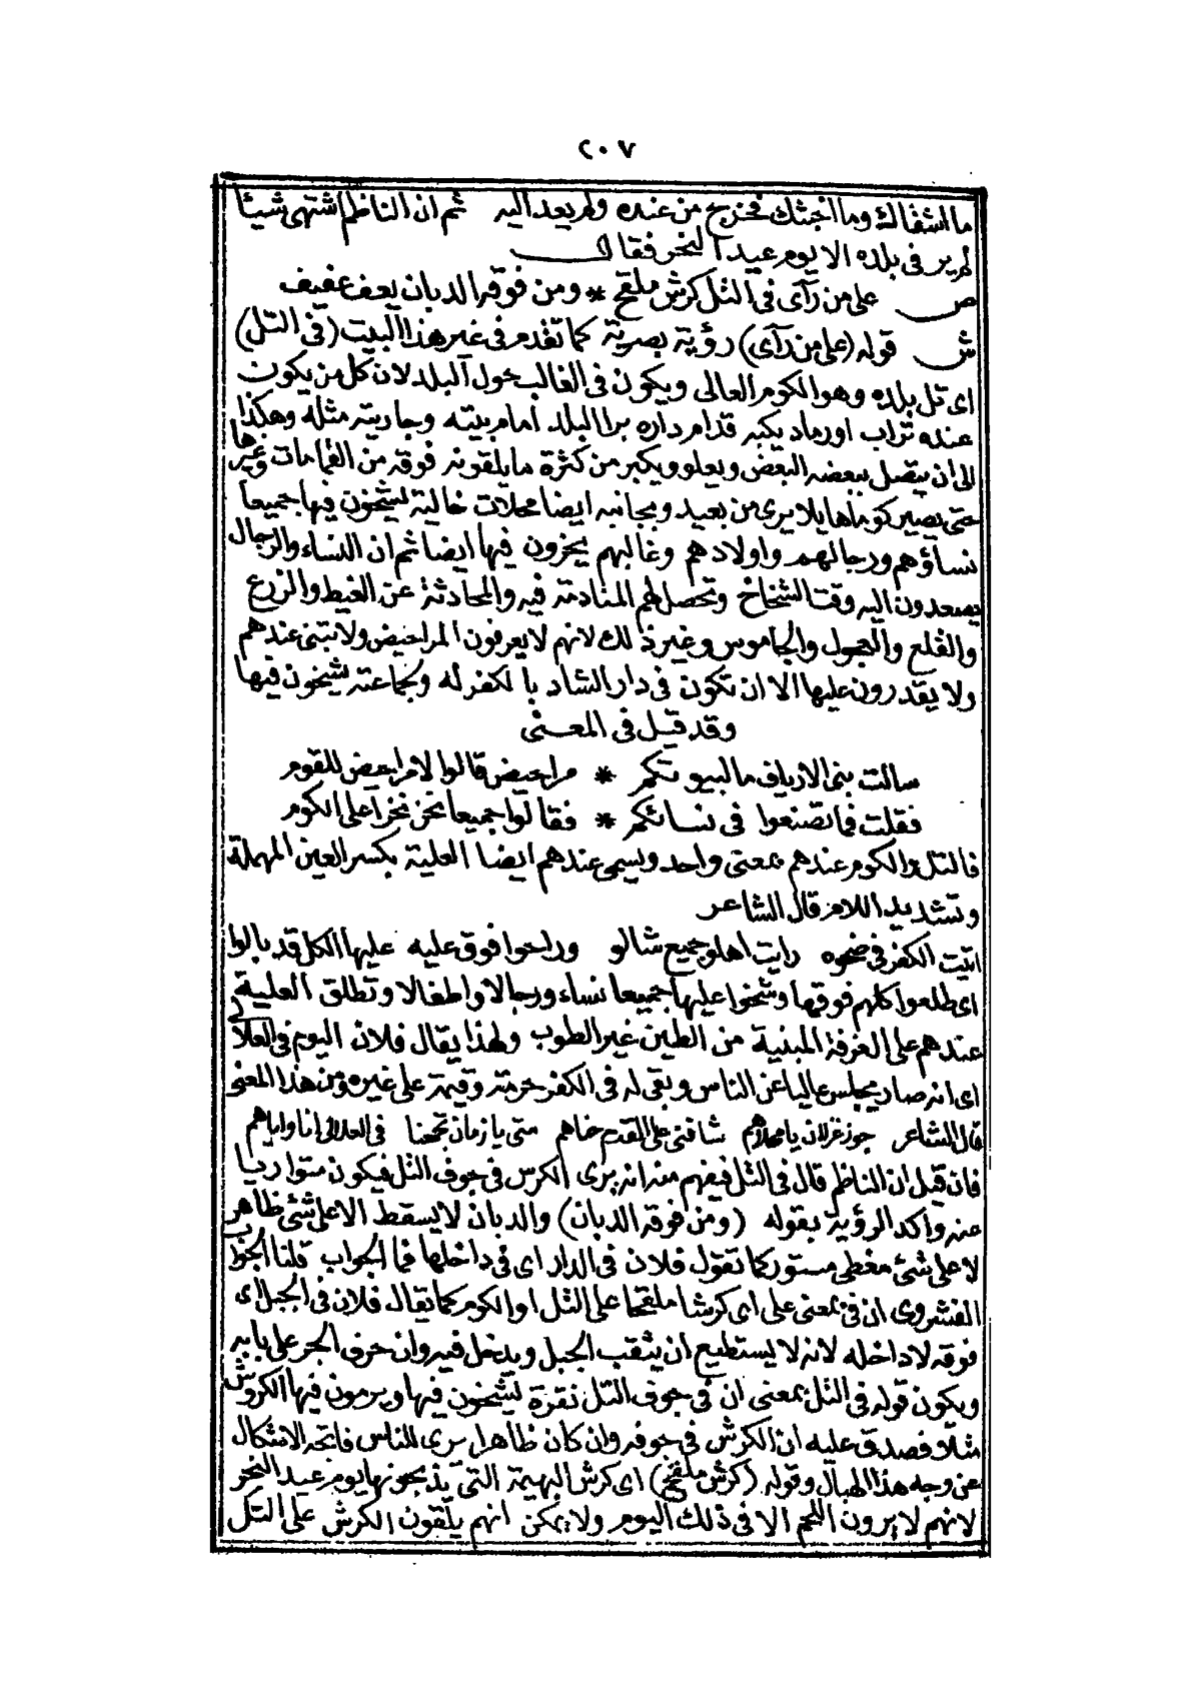 ٢٠٧
ما اشقاك وما اخبثك فخرج من عنده ولم يعد اليه ثم ان الناظم اشتهى شيئا
لم ير فى بلده الا يوم عيد النحر فقال
ص على من رآى فى التل كرش ملقح * ومن فوقه الدبان يعف عفيف
ش قوله (على من رآى) رؤية بصرية كما تقدم فى غير هذا البيت (فى التل)
اى تل بلده وهو الكوم العالى ويكون فى الغالب حول البلد لان كل من يكون
عنده تراب او رماد يكبه قدام داره برا البلد امام بيته وجاريته مثله وهكذا
الى ان يتصل ببعضه البعض ويعلو ويكبر من كثرة ما يلقونه فوقه من القمامات وغيرها
حتى يصير كوما هايلا يرى من بعيد وبجانبه ايضا محلات خالية ليشخون فيها جميعا
نساؤهم ورجالهم واولادهم وغالبهم يخرون فيها ايضا ثم ان النساء والرجال
يصعدون اليه وقت الشخاخ وتحصل لهم المنادمة فيه والمحادثة عن الغيط والزرع
والقلع والعجول والجاموس وغير ذلك لانهم لا يعرفون المراحيض ولا تبنى عندهم
ولا يقدرون عليها الا ان تكون فى دار الشاد بالكفر له ولجماعته يشخون فيها
وقد قيل فى المعنى
سالت بنى الارياف ما لبيوتكم * مراحيض قالوا لا مراحيض للقوم
فقلت فما تصنعوا فى نسائكم * فقالوا جميعا نحن نخرا على الكوم
فالتل والكوم عندهم بمعنى واحد ويسمى عندهم ايضا العلية بكسر العين المهملة
وتشديد اللام قال الشاعر
اتيت الكفر فى ضحوه رايت اهلو جميع شالو وراحوا فوق عليه عليها الكل قد بالوا
اى طلعوا كلهم فوقها وشخوا عليها جميعا نساء ورجالا واطفالا وتطلق العلية
عندهم على الغرفة المبنية من الطين غير الطوب ولهذا يقال فلان اليوم فى العلالى
اى انه صار يجلس عاليا عن الناس وبقى له فى الكفر حرمة وقيمة على غيره ومن هذا المعنى
قال الشاعر جوز غزلان يا محلاهم شافتنى على القدم خاهم متى يا زمان تجمعنا فى العلالى انا واياهم
فان قيل ان الناظم قال فى التل فيفهم منه انه يرى الكرش فى جوف التل فيكون متواريا
عنه واكد الرؤية بقوله (ومن فوقه الدبان) والدبان لا يسقط الا على شئ ظاهر
لا على شئ مغطى مستور كما تقول فلان فى الدار اى فى داخلها فما الجواب قلنا الجواب
الفشروى ان فى بمعنى على اى كرشا ملقحا على التل او الكوم كما يقال فلان فى الجبل اى
فوقه لا داخله لانه لا يستطيع ان يثقب الجبل ويدخل فيه وان حرف الجر على بابه
ويكون قوله فى التل بمعنى ان فى جوف التل نقرة يشخون فيها ويرمون فيها الكروش
مثلا فصدق عليه ان الكرش فى جوفه وان كان ظاهرا يرى للناس فاتجه الاشكال
عن وجه هذا الهبال وقوله (كرش ملقح) اى كرش البهيمة التى يذبحونها يوم عيد النحر
لانهم لا يرون اللحم الا فى ذلك اليوم ولا يمكن انهم يلقون الكرش على التل